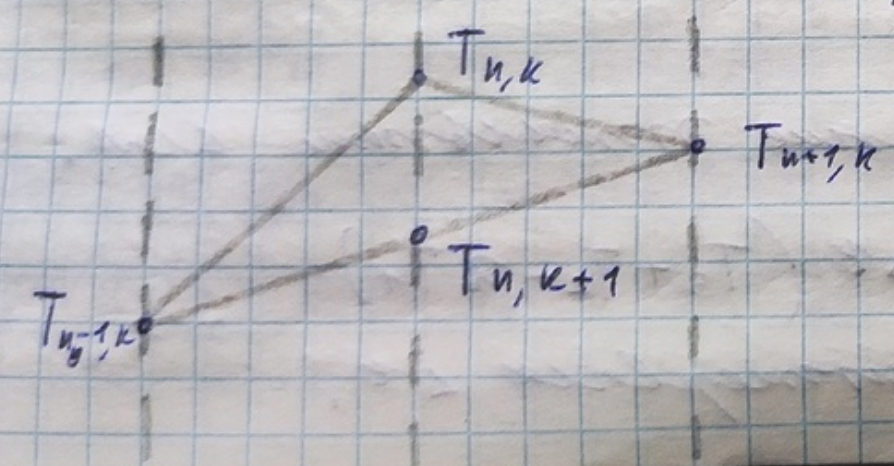 T n, k
T n+1, k
T n, k+1
T n-1, k